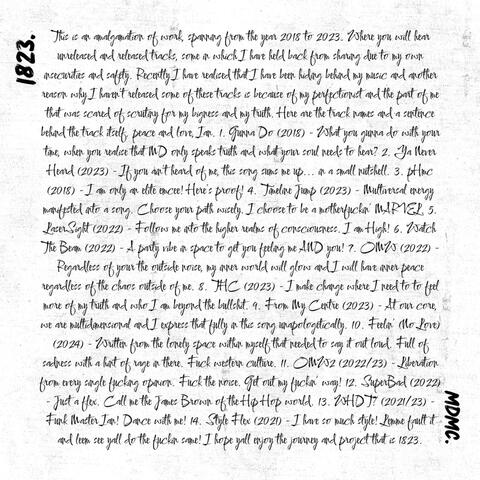 1823.
This is an amalgamation of work, spanning from the year 2018 to 2023. Where you will hear
unreleased and released tracks, some in which I have held back from sharing due to my own
insecurities and safety. Recently I have realised that I have been hiding behind my music and another
reason why I haven't released some of these tracks is because of my perfectionist and the part of me
that was scared of scrutiny for my bigness and my truth. Here are the track names and a sentence
behind the track itself, peace and love, Ian. 1. Gunna Do (2018) - What you gunna do with your
time, when you realise that MD only speaks truth and what your soul needs to hear? 2. Ya Never
Heard (2023) - If you ain't heard of me, this song sums me up... in a small nutshell. 3. pHmc
(2018) - I am only an elite emcee! Here's proof! 4. Timeline Jump (2023) - Multiversal energy
manifested into a song. Choose your path wisely, I choose to be a motherfuckin' MARVEL. 5.
LaserSight (2022) - Follow me into the higher realms of consciousness. I am High! 6. Watch
The Beam (2022) - A party vibe in space to get you feeling me AND you! 7. OMW (2022) -
Regardless of your the outside noise, my inner world will glow and I will have inner peace
regardless of the chaos outside of me. 8. THC (2023) - I make change where I need to to feel
more of my truth and who I am beyond the bullshit. 9. From My Centre (2023) - At our core,
we are multidimensional and I express that fully in this song unapologetically. 10. Feelin' (No Love)
(2024) - Written from the lonely space within myself that needed to say it out loud. Full of
sadness with a hint of rage in there. Fuck western culture. 11. OMW2 (2022/23) - Liberation
from every single fucking opinion. Fuck the noise. Get out my fuckin' way! 12. SuperBad (2022)
- Just a flex. Call me the James Brown of the Hip Hop world. 13. WHDT? (2021/23) -
Funk Master Ian! Dance with me! 14. Style Flex (2021) - I have so much style! Lemme fault it
and leem see yall do the fuckin same! I hope yall enjoy the journey and project that is 1823.
MDMC.